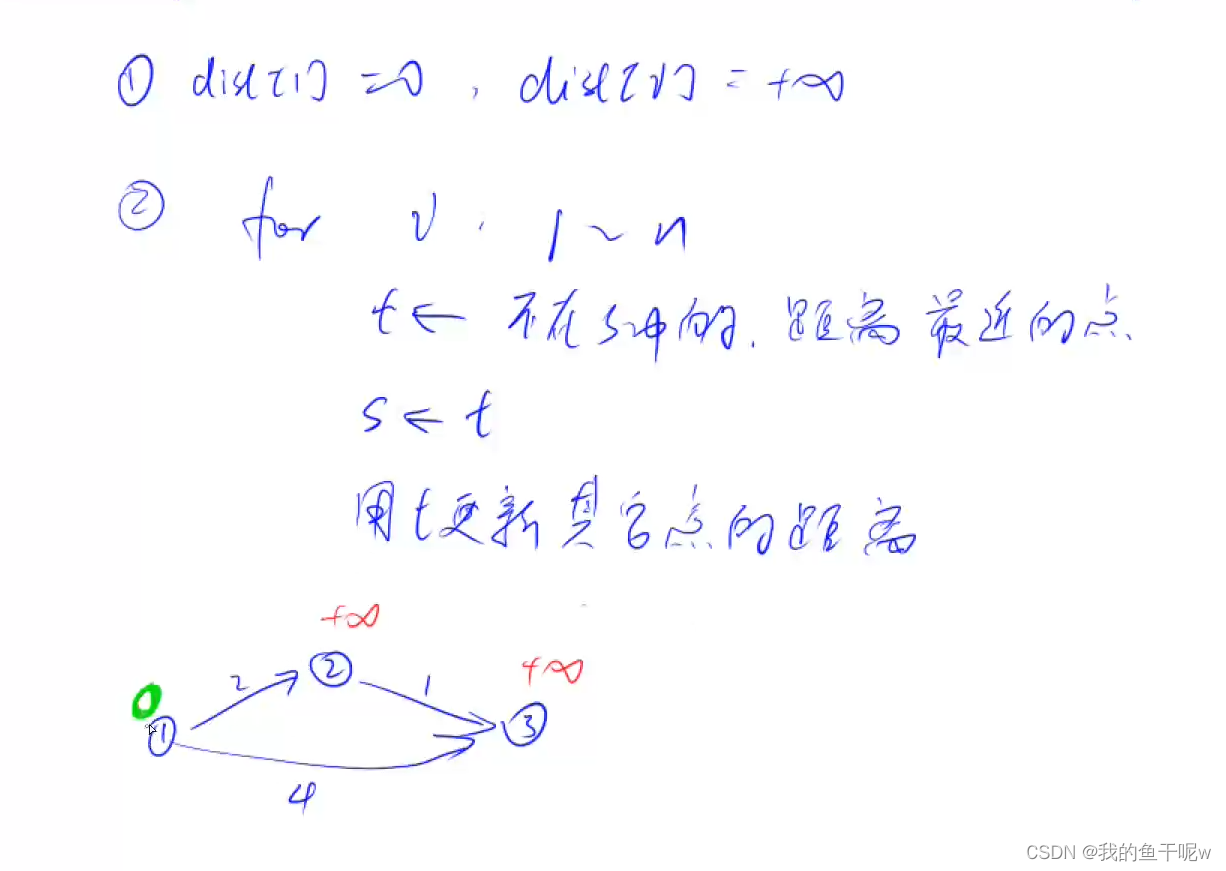 ① dist[1] = 0, dist[v] = +∞
② for v: 1 ~ n
t ← 不在s中的, 距离最近的点.
s ← t
用t更新其它点的距离
+∞
+∞
0
①
2
②
1
③
4
CSDN @我的鱼干呢w